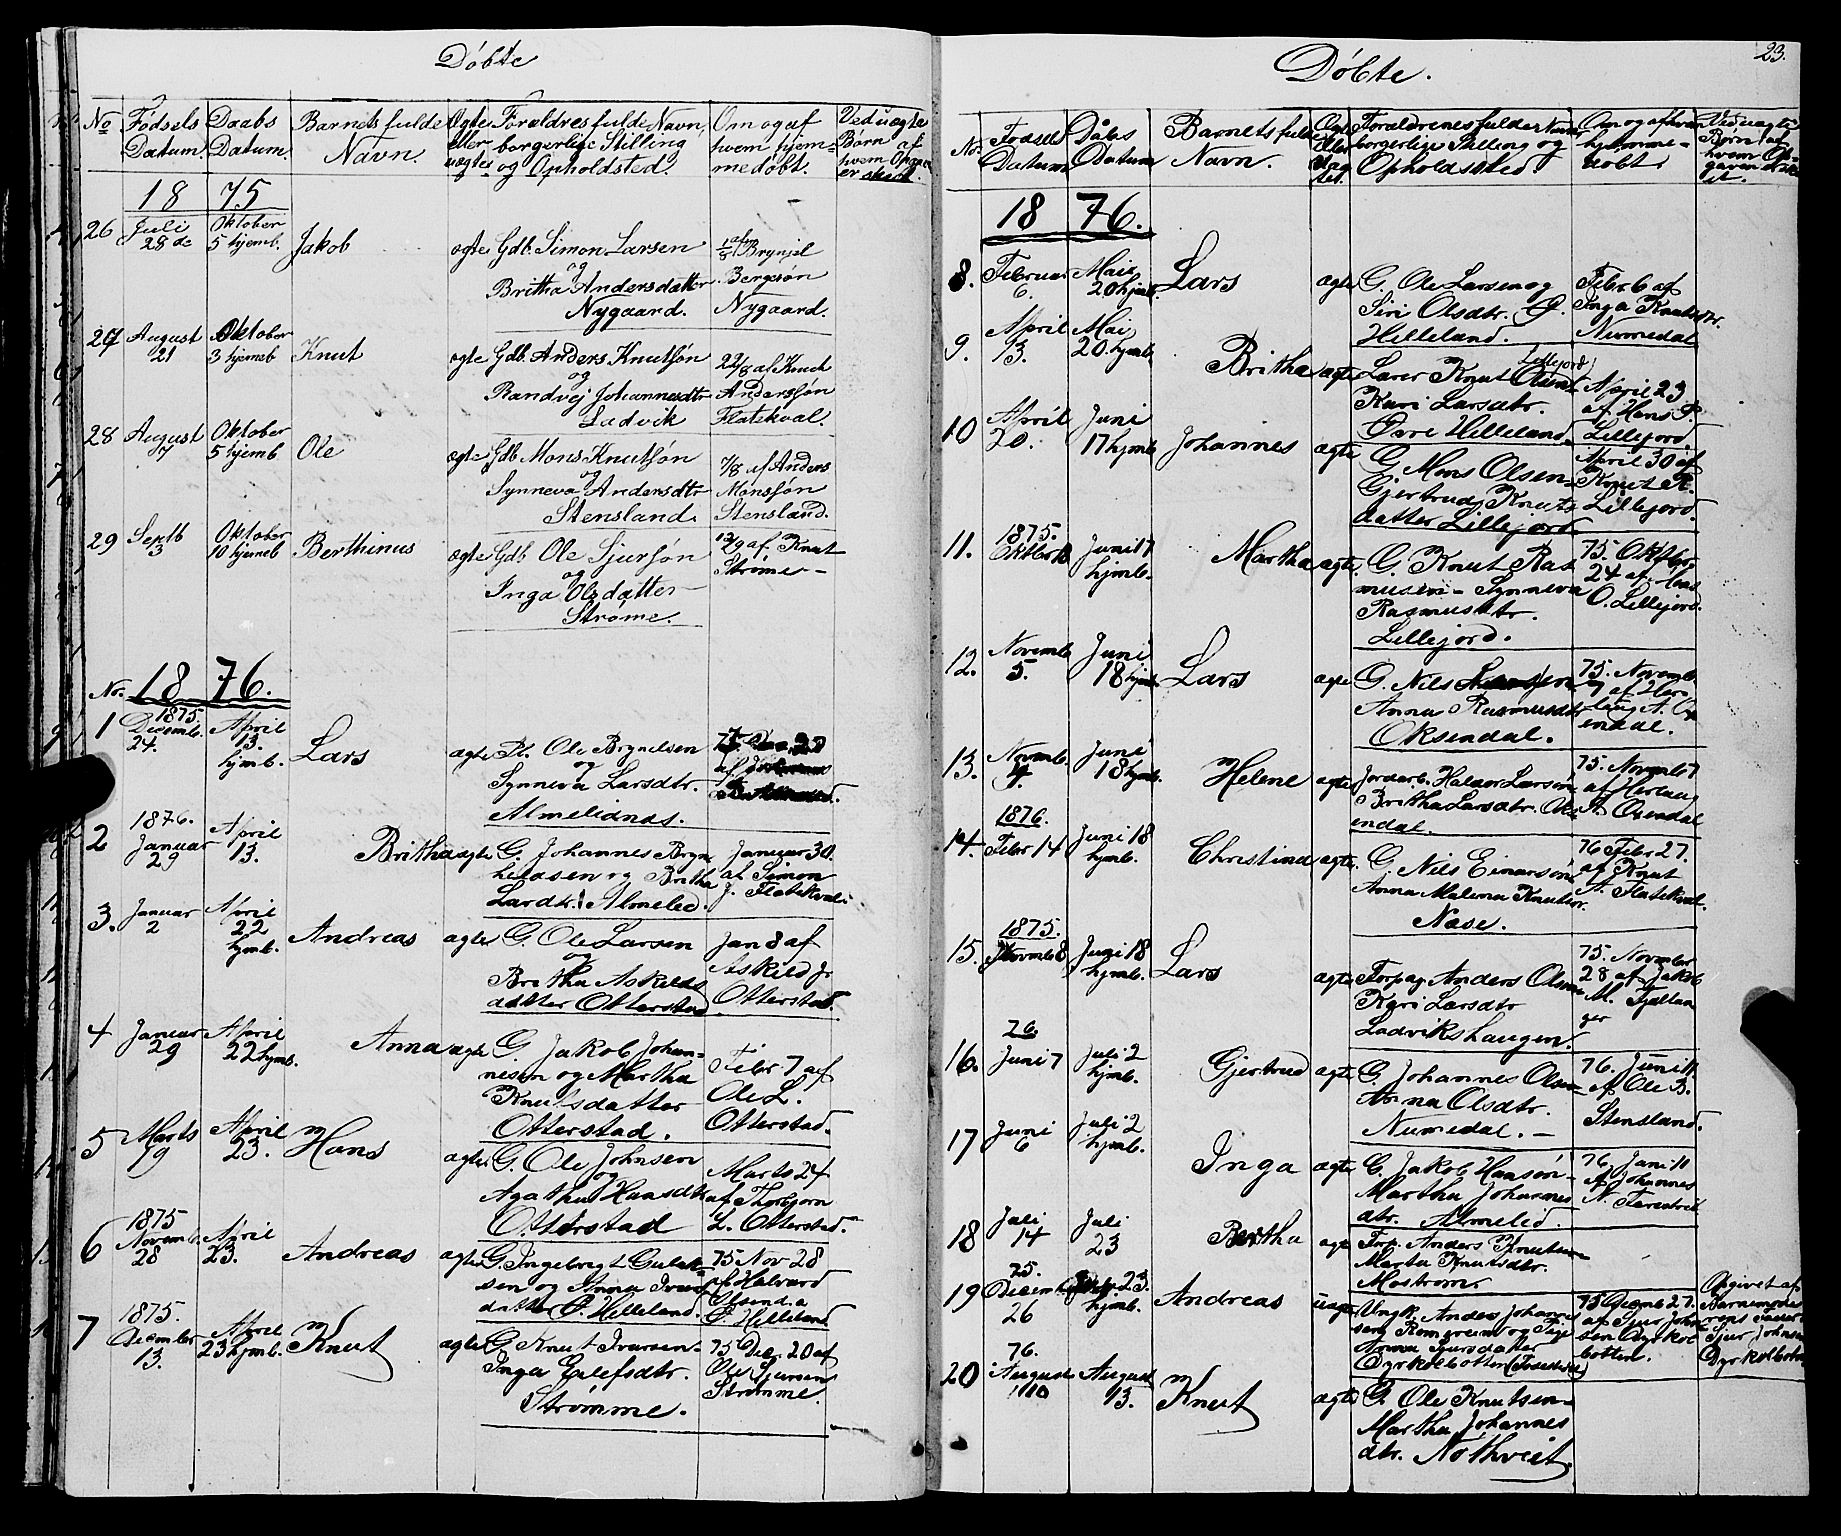 Döbte
No
Födsels Datum.
Daabs Datum.
Barnets fulde Navn.
Ægte eller uægte
Forældres fulde Navn, borgerlige Stilling og Opholdsted.
Om og af hvem hjemmedöbt.
Ved uægte Börn af hvem Opgave er skeet.
1875
26 Juli 28de Oktober 5 hjemb. Jakob ægte Gdb. Simon Larsen
og
Britha Andersdatter
Nygaard.
af Brynjel
Bergesön
Nygaard.
27 August 21 Oktober 3 hjemb Knut ægte Gdb. Anders Knutsön
og
Randvej Johannesdtr
Ladvik
22/8 af Knut
Anderssön
Flatekval.
28 August 7 Oktober 5 hjemb Ole ægte Gdb. Mons Knutsön
og
Synneva Andersdtr
Stensland.
7/8 af Anders
Monssön
Stensland.
29 Septb 3 Oktober 10 hjemb Berthinus ægte Gdb. Ole Sjursön
og
Inga Olsdatter
Ströme.
af Knut
Ströme
No. 1876.
1 1875. Decemb. 24. April 13. hjmb. Lars ægte Pl. Ole Brynelsen
og
Synneva Larsdtr.
Almelidnes.
2 1876. Januar 29 April 13. Britha ægte G. Johannes Bryn
ieldsen og Britha
Larsdtr. Almelid.
Januar 30.
af Simon
J. Flatekval
3. Januar 2 April 22 hjmb. Andreas ægte G. Ole Larsen
og
Britha Askelds
datter Otterstad
Jan 8 af
Askild J.
Otterstad.
4 Januar 29 April 22 hjmb. Anna ægte G. Jakob Johan-
nesen og Martha
Knutsdatter
Otterstad.
Febr 7 af
Ole L.
Otterstad.
5 Marts 19 April 23. Hans ægte G. Ole Johnsen
og
Agatha Hansdtr
Otterstad
Marts 24
af Thorbjorn
L. Otterstad.
6 1875 Novemb. 28 April 23. Andreas ægte G. Ingebrigt Gulak
sen og Anna Ivers
datter Ö. Hilleland.
75 Nov 28
af Halvard
Ö. Hilleland
7 1875. December 13. April 23 hjmb. Knut ægte G. Knut Iversen
Inga Eilefsdtr.
Strömme.
75 Dec. 20 af
Ole Sjursen
Strömme.
Döbte.
23.
No.
Födsels Datum
Dåbs Datum
Barnets fulde Navn.
Ægte eller Uægte.
Forældrenes fulde Navn, borgerlige Stilling og Opholdssted.
Om og af hvem hjemmedöbt.
1876.
8. Februar 6. Mai 20 hjmb. Lars ægte G. Ole Larsen og
Siri Olsdtr. Ö.
Hilleland.
Febr 6 af
Inga Knutsdtr.
Numedal
9. April 13. Mai 20. hjmb Britha ægte Lærer Knut Olsen
Lillejord
Kari Larsdtr.
Övre Hilleland
April 23
af Hans P.
Lillejord.
10 April 20. Juni 17 hjmb Johannes ægte G. Mons Olsen
Gjertrud Knuts
datter Lillejord
April 30 af
Knut R.
Lillejord.
11. 1875. Juni 17 hjmb. Martha ægte G. Knut Ras
musen - Synneva
Rasmusdtr.
Lillejord.
75. Oktbr
24 af
O. Lillejord.
12. Novemb 5. Juni 18 hjmb. Lars ægte G. Nils
Anna Rasmusdtr
Oksendal.
75. Novemb.
7 af Her
laug A. Ox
endal.
13. Novemb. Juni 18 hjmb. Helene ægte Jordarb. Haldor Larsön
Britha Larsdtr. Oks
endal.
75. Novemb 7
af Herlaug
A. Oxendal
14. 1876. Febr 14 Juni 18 hjmb. Christina ægte G. Nils Einarsön
Anna Malena Knutsdtr.
Næse.
76 Febr 27.
af Knut
A. Flatekval.
15. 1875. Novemb 8 Juni 18 hjmb. Lars ægte Forpag. Anders Olsen
Kari Larsdtr
Ladvikshaugen.
75. Novmber
28 af Jakob
M. Fjellan
ger
16. 76. Juni 7 Juli 2 hjmb. Gjertrud ægte G. Johannes Olsen
Anna Olsdtr.
Numedal. -
76. Juni 11
af Ole B.
Stensland.
17 Juni 6 Juli 2 hjmb. Inga ægte G. Jakob Hansön
Martha Johannes
dtr. Almelid.
76. Juni 11
af Johannes
18 Juli 14 Juli 23 Bertha ægte Forp. Anders Knutsen
Marta Knutsdtr.
Moström.
19 75. Decemb 26 23. hjmb. Andreas uægte Ungk. Anders Johanne
sen Romereim og Pige
Anna Sjursdatter
Dyrkolbotten
75 Decemb 27.
af Sjur John
sen Dyrkol
botten.
Opgivet af
Barnemode
rens Fader
Sjur Johnsen
Dyrkolbotn
20 76. August August 13. Knut ægte G. Ole Knutsen
Martha Johannes
dtr. Nothveit.